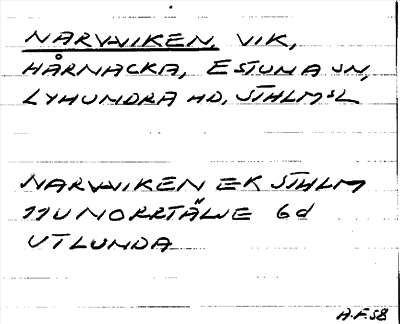 NARVVIKEN, VIK,
HÅRNACKA, ESTUNA SN,
LYHUNDRA HD, STHLMSL
NARVVIKEN EK STHLM
11U NORRTÄLJE 6d
UTLUNDA
A.F.58